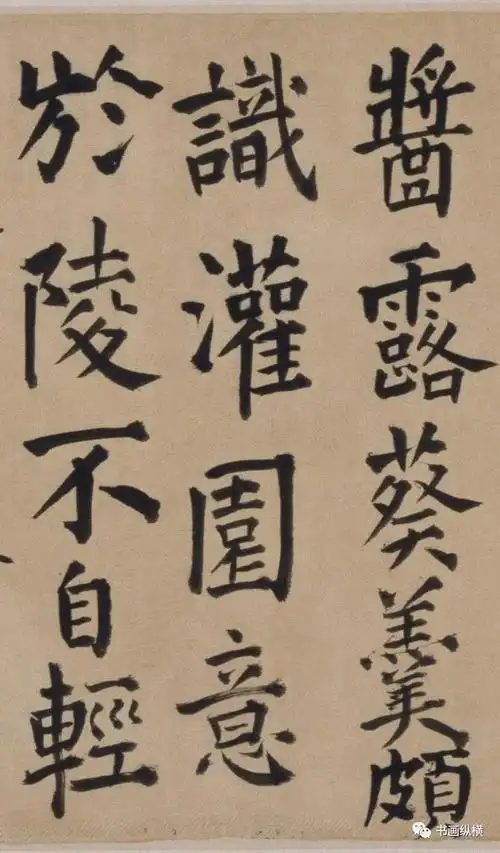 醬露葵羹頗
識灌園意
於陵不自輕
书画纵横